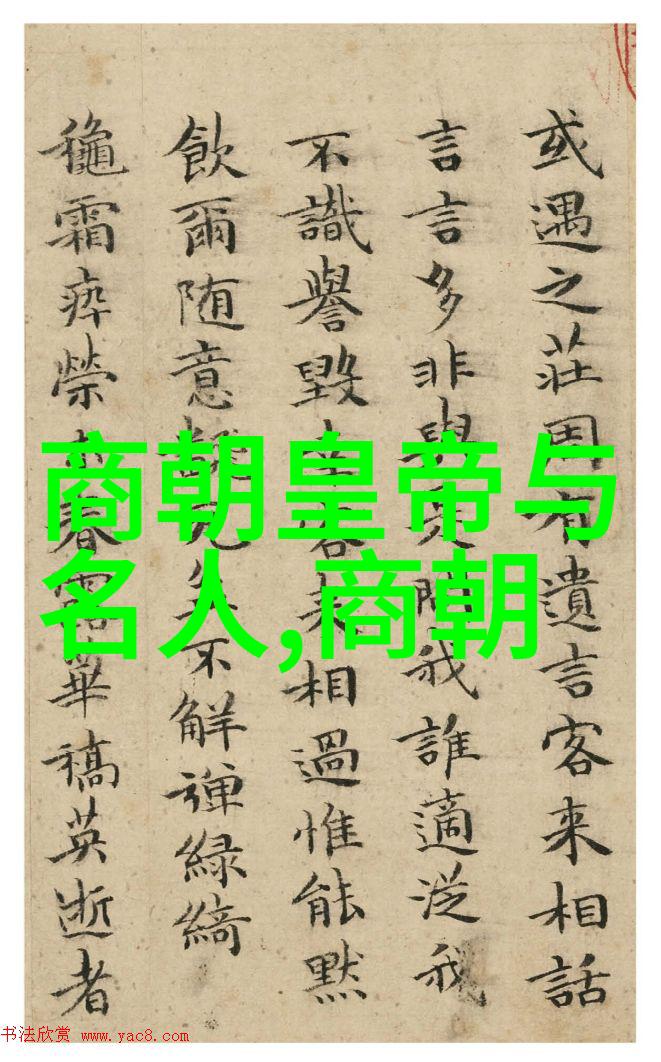 或遇之莊周有遺言客来相話
言言多非與問我誰適從我
不識譽毀客来相過惟能默
飲爾随意不解彈緑綺
龝霜瘁榮春露華稿英逝者
商朝皇帝与
名人,商朝
书法欣赏 www.yac8.com